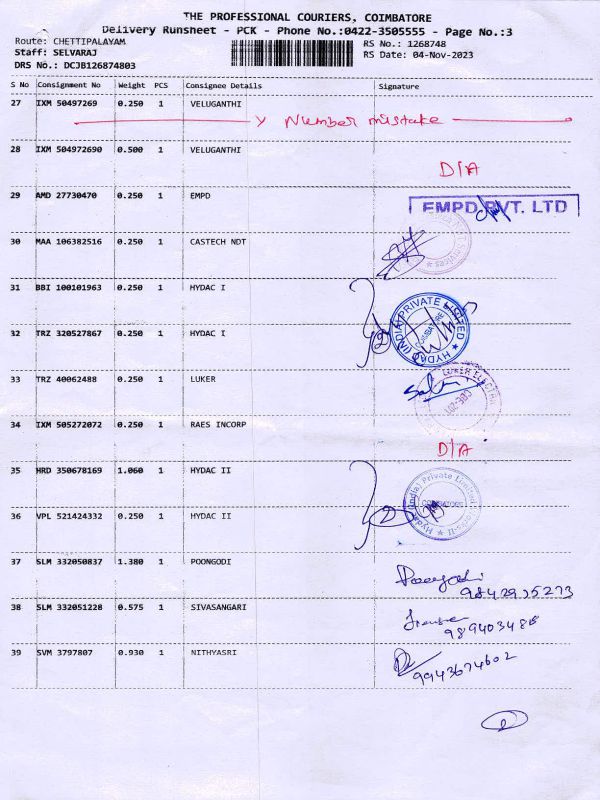 THE PROFESSIONAL COURIERS, COIMBATORE
Delivery Runsheet - PCK - Phone No.:0422-3505555 - Page No.:3
Route: CHETTIPALAYAM RS No.: 1268748
Staff: SELVARAJ RS Date: 04-Nov-2023
DRS No.: DCJB126874803
S No Consignment No Weight PCS Consignee Details Signature
27 IXM 50497269 0.250 1 VELUGANTHI
Number mistake
28 IXM 504972690 0.500 1 VELUGANTHI
D/A
29 AMD 27730470 0.250 1 EMPD
EMPD PVT. LTD
30 MAA 106382516 0.250 1 CASTECH NDT
31 BBI 100101963 0.250 1 HYDAC I
HYDAC (INDIA) PRIVATE LIMITED
COIMBATORE
32 TRZ 320527867 0.250 1 HYDAC I
33 TRZ 40062488 0.250 1 LUKER
LUKER ELECTRIC
34 IXM 505272072 0.250 1 RAES INCORP
D/A
35 HRD 350678169 1.060 1 HYDAC II
Hydac (India) Private Limited
COIMBATORE
36 VPL 521424332 0.250 1 HYDAC II
2
37 SLM 332050837 1.380 1 POONGODI
Poongodi
9842975273
38 SLM 332051228 0.575 1 SIVASANGARI
39 SVM 3797807 0.930 1 NITHYASRI
9943674602
2